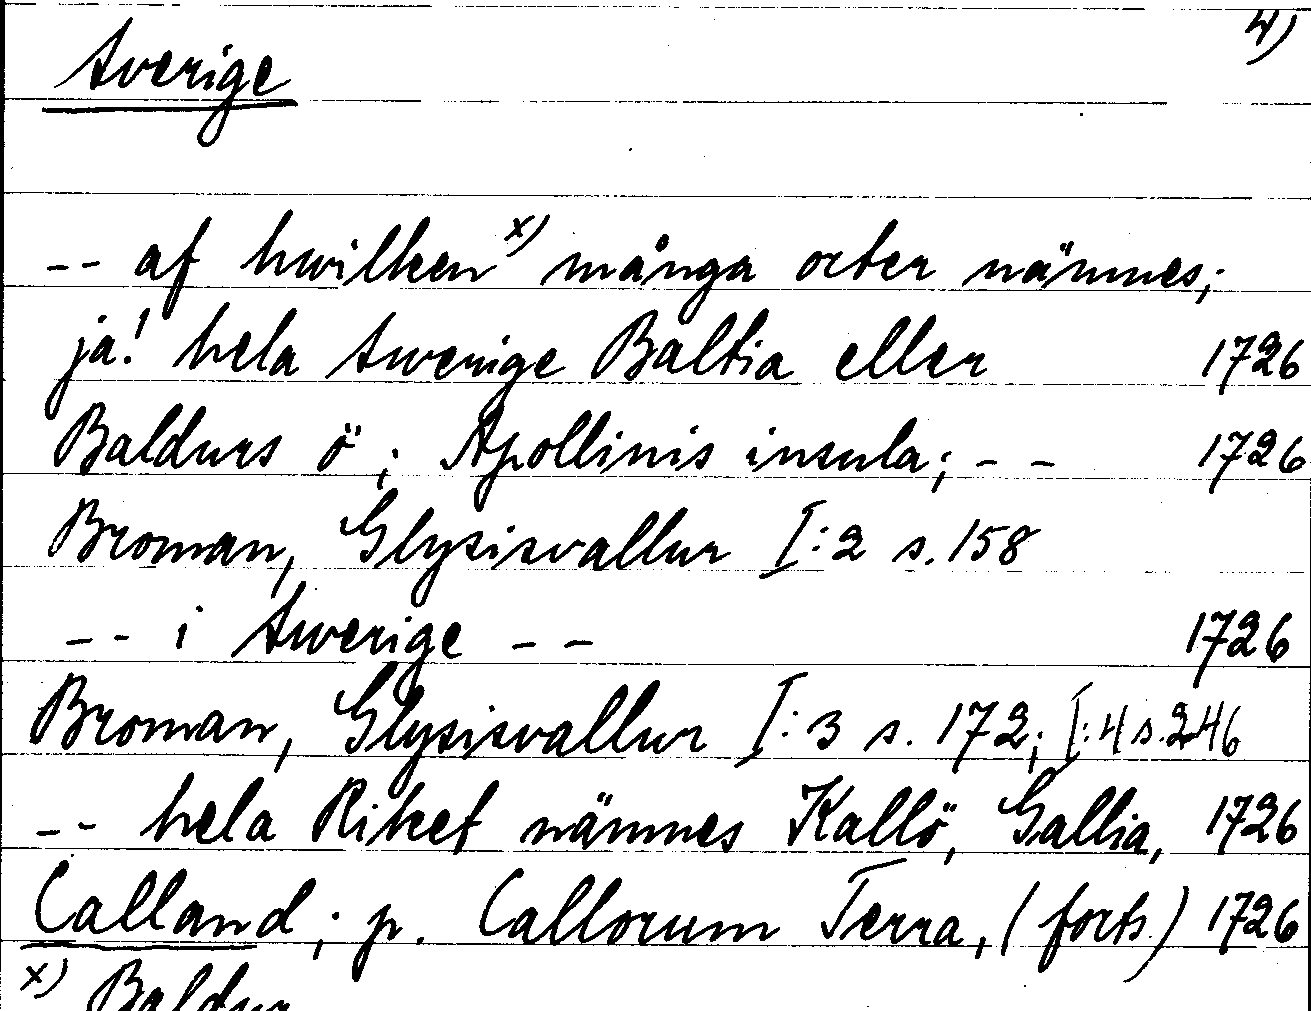 4)
Sverige
-- af hwilken x) många orter nämnes;
ja! hela Swerige Baltia eller 1726
Baldurs ö; Apollinis insula; -- 1726
Broman, Glysisvallur I:2 s.158
-- i Swerige -- 1726
Broman, Glysisvallur I:3 s. 172; I:4 s.246
-- hela Riket nämnes Kallö, Gallia, 1726
Calland; p. Callorum Terra, (forts.) 1726
x) Baldur